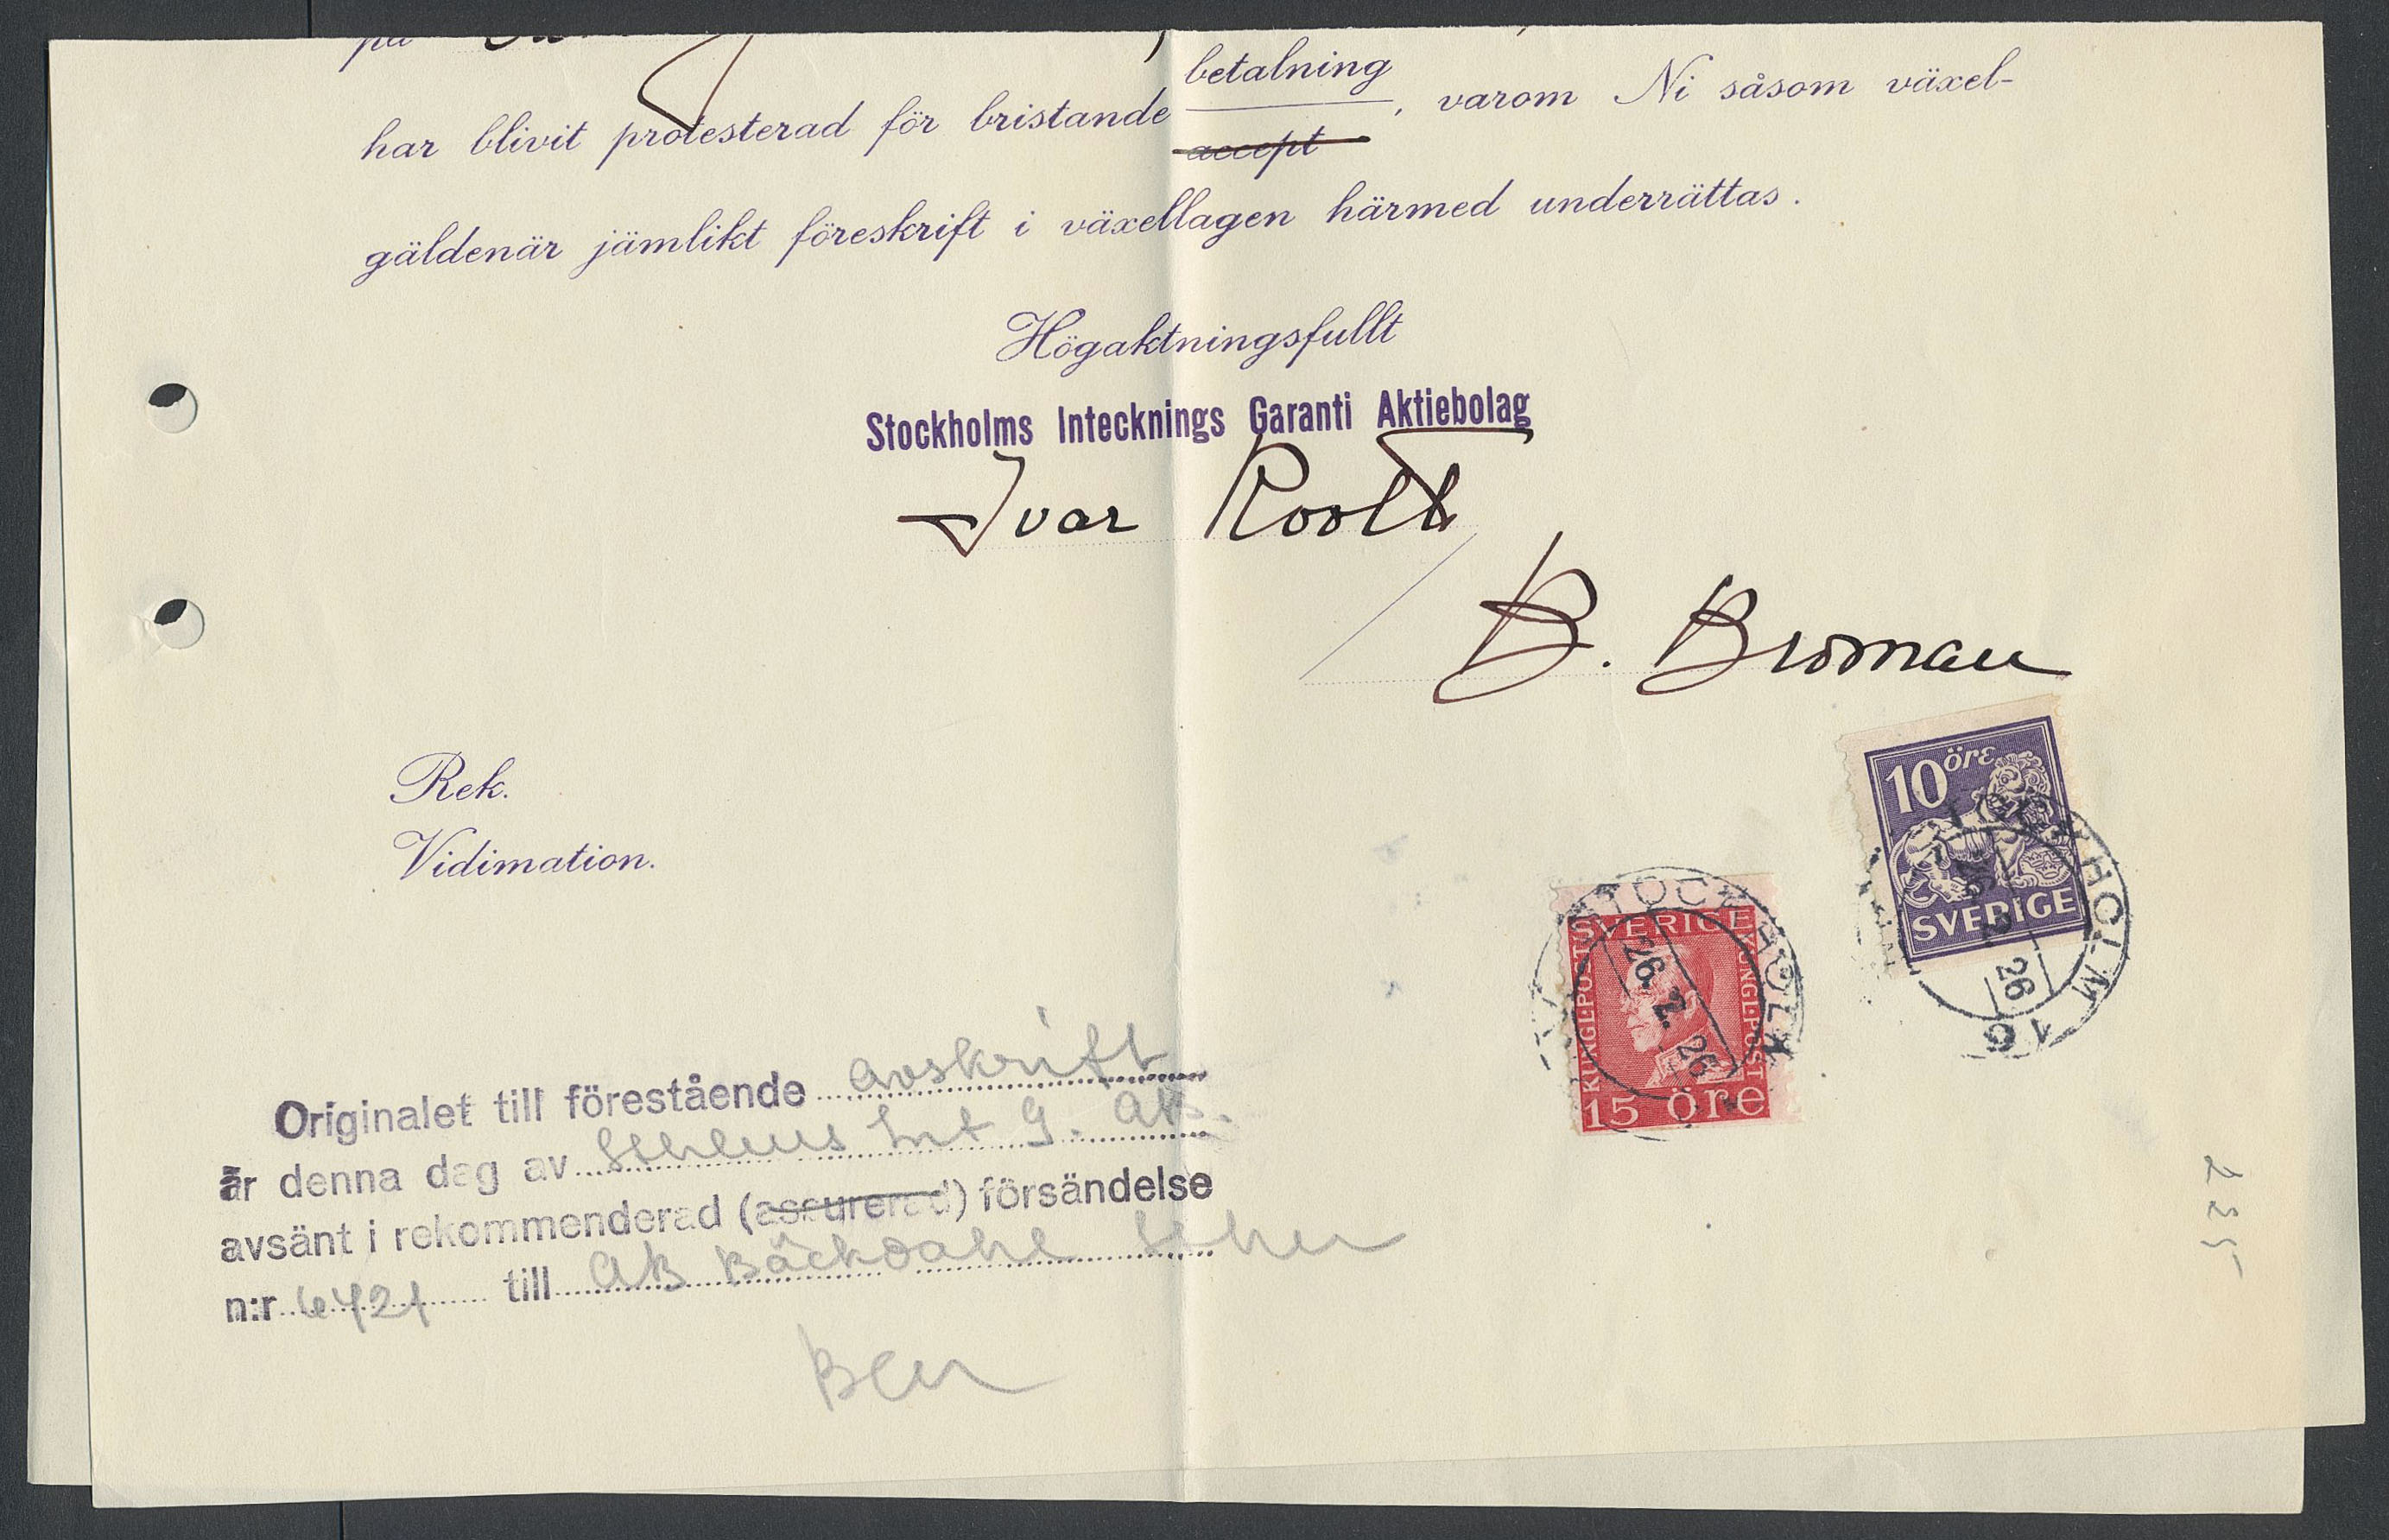 på
betalning
har blivit protesterad för bristande , varom Ni såsom växel-
accept
gäldenär jämlikt föreskrift i växellagen härmed underrättas.
Högaktningsfullt
Stockholms Intecknings Garanti Aktiebolag
Ivar Rooth
B. Broman
Rek.
Vidimation.
10 öre
SVERIGE
STOCKHOLM
26
16
STOCKHOLM
SVERIGE
KUNGL·POST
KUNGL·POST
26. 2. 26
15 öre
Originalet till förestående avskrift
är denna dag av Sthlms Int G. AB.
avsänt i rekommenderad (assurerad) försändelse
n:r 6421 till AB Bäckdahl Sthlm
225